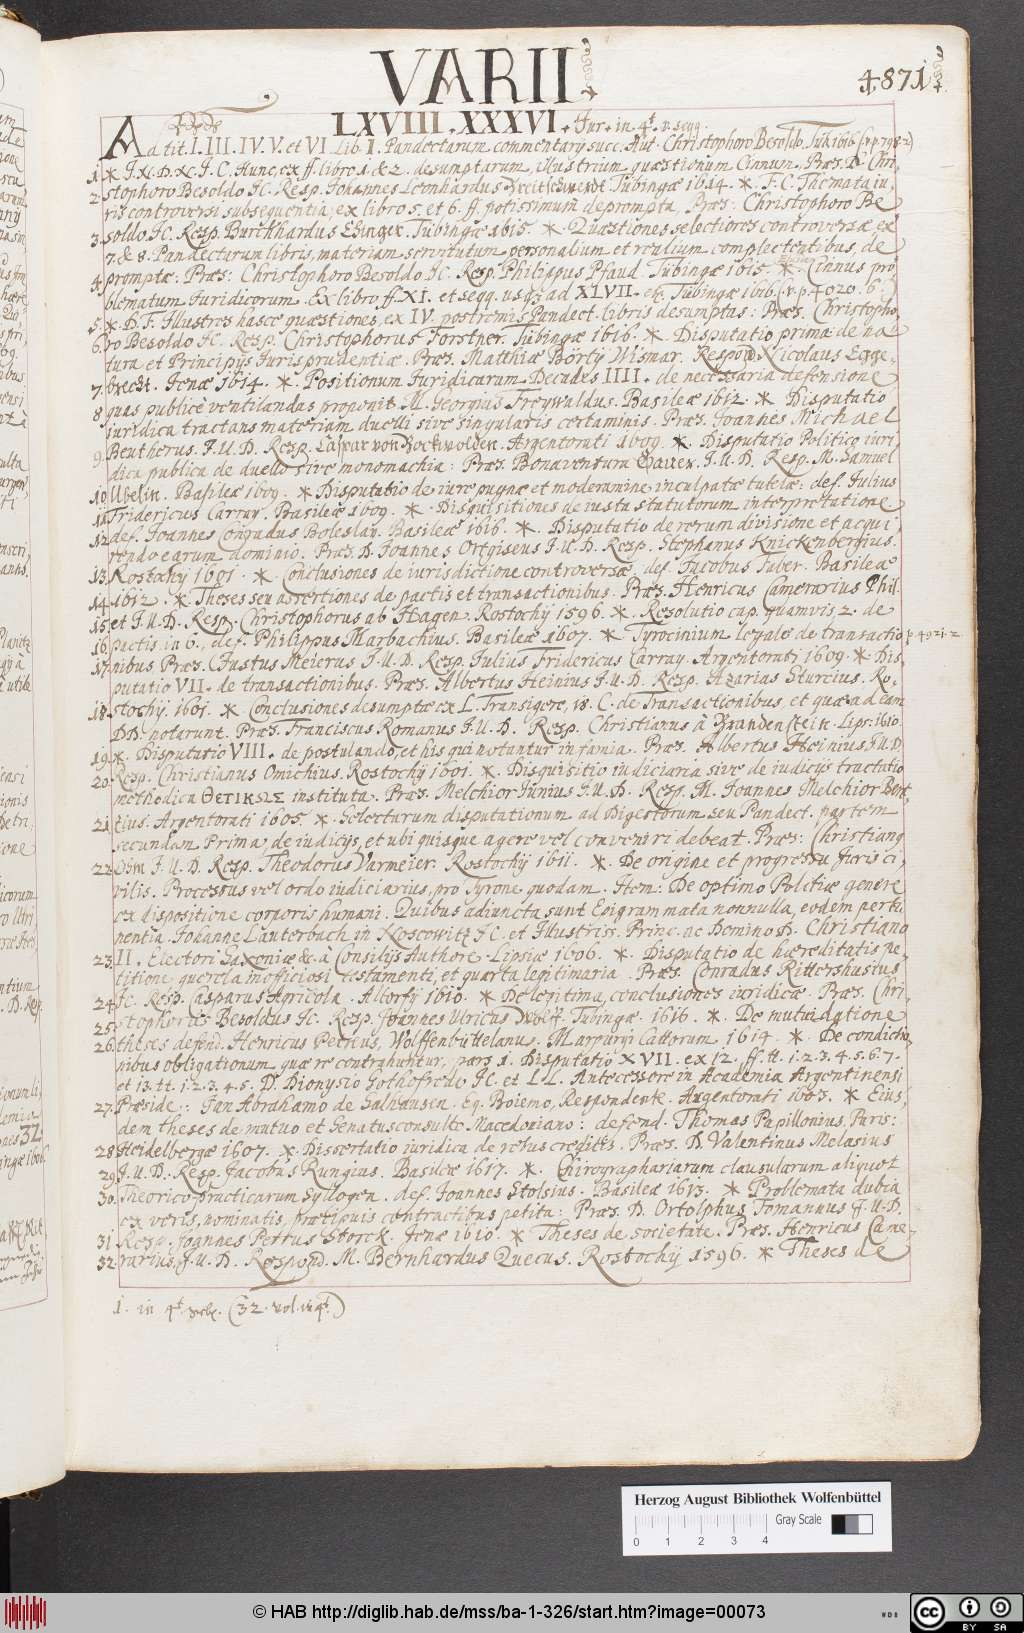 VARII
4871
LXVIII. XXXVI. Jur. in 4t.
Ad tit. I. III. IV. V. et VI Lib. II. Pandectarum commentarij succ. Aut. Christophoro Besoldo. Tub. 1616.
1. * J. N. D. N. J. C. Hunc, ex ff. libro 1. & 2. desumptarum, illustrium quæstionum Cinnum. Præs. D. Chri-
2. stophoro Besoldo JC. Resp. Johannes Leonhardus Breitschwerdt Tubingæ 1614. * F. C. Themata iu,
ris controversi subsequentia, ex libro 5. et 6. ff. potissimum deprompta, Præs: Christophoro Be
3. soldo JC. Resp. Burckhardus Ehinger. Tubingæ 1615. * Quæstiones selectiores controversæ ex
7. & 8. Pandectarum libris, materiam servitutum personalium et realium complectentibus, de
4. promptæ. Præs: Christophoro Besoldo JC. Resp. Philippus Pfaud. Tubingæ 1615. * Cinnus pro
blematum Juridicorum. Ex libro ff. XI. et seqq. usq3 ad XLVII. etc. Tubingæ 1616. (v. p. 4020. 6.)
5. * D. F. Illustres hasce quæstiones, ex IV. postremis Pandect. libris desumptas: Præs. Christopho,
6. ro Besoldo JC. Resp. Christophorus Forstner. Tubingæ 1616. * Disputatio prima de na,
tura et Principijs Jurisprudentiæ. Præs. Matthiæ Börty Wismar. Respond. Nicolaus Egge,
7. brecht. Jenæ 1614. * Positionum Juridicarum Decades IIII. de necessaria defensione
8. quas publicè ventilandas proponit M. Georgius Freywaldus. Basileæ 1612. * Disputatio
juridica tractans materiam duelli sive singularis certaminis. Præs. Joannes Michael
9. Beutherus. J. U. D. Resp. Caspar von Bockwolden. Argentorati 1609. * Disputatio Politico iuri-
dica publica de duello sive monomachia: Præs. Bonaventura Gauer. J. U. D. Resp. M. Samuel
10. Ubelin. Basileæ 1609. * Disputatio de iure pugnæ et moderamine inculpatæ tutelæ: def. Julius
11. Fridericus Carray. Basileæ 1609. * Disquisitiones de iusta statutorum interpretatione
12. def. Joannes Conradus Boleslav. Basileæ 1616. * Disputatio de rerum divisione et acqui,
rendo earum dominio. Præs. D. Joannes Ortgiseus J. U. D. Resp. Stephanus Knickenbergius.
13. Rostochij 1601. * Conclusiones de iurisdictione controversæ. def. Jacobus Tuber. Basileæ
14. 1612. * Theses seu assertiones de pactis et transactionibus. Præs. Henricus Camerarius Phil.
15. et J. U. D. Resp. Christophorus ab Hagen. Rostochij 1596. * Resolutio cap. quamvis 2. de
16. pactis in 6., def. Philippus Marbachius. Basileæ 1607. * Tyrocinium legale de transactio
17. nibus Præs. Justus Meierus J. U. D. Resp. Julius Fridericus Carray. Argentorati 1609. * Dis,
putatio VII. de transactionibus. Præs. Albertus Heinius J. U. D. Resp. Azarias Sturcius. Ro-
18. stochij. 1601. * Conclusiones desumptæ ex L. Transigere, 18. C. de Transactionibus, et quæ ad eam
DD. notarunt. Præs. Franciscus Romanus J. U. D. Resp. Christianus à Brandenstein. Lips: 1610.
19. * Disputatio VIII. de postulando, et his qui notantur infamia. Præs. Albertus Heinius, J. U. D.
20. Resp. Christianus Omichius. Rostochij 1601. * Disquisitio iudiciaria sive de iudicijs tractatio
methodica ΘΕΤΙΚΩΣ instituta. Præs. Melchior Junius J. U. D. Resp. M. Joannes Melchior Bort,
21. tius. Argentorati 1605. * Selectarum disputationum ad Digestorum seu Pandect. partem
secundam Prima, de iudicijs, et ubi quisque agere vel conveniri debeat. Præs: Christiang
22. Osm J. U. D. Resp. Theodorus Varmeier. Rostochij 1611. * De origine et progressu Juris ci,
vilis. Processus vel ordo iudiciarius, pro Tyrone quodam. Item: De optimo Politiæ genere
ex dispositione corporis humani. Quibus adiuncta sunt Epigrammata nonnulla, eodem perti
nentia. Johanne Lauterbach in Noscowitz JC. et Illustriss. Princ. ac Domino D. Christiano
23. II. Electori Saxoniæ &c. à Consilijs Authore. Lipsiæ 1606. * Disputatio de hæreditatis pe
titione querela inofficiosi testamenti, et quarta legitimaria. Præs. Conradus Rittershusius,
24. JC. Resp. Casparus Agricola. Altorfij 1610. * De legitima, conclusiones iuridicæ. Præs. Chri-
25. stophorus Besoldus JC. Resp. Joannes Ulricus Wolff. Tubingæ. 1616. * De mutui datione
26. theses defend. Henricus Petreus, Wolffenbüttelanus. Marpurgi Cattorum 1614. * De condictio
nibus obligationum quæ re contrahuntur, pars 1. Disputatio XVII. ex 12. ff. tt. 1. 2. 3. 4. 5. 6. 7.
et 13. tt. 1. 2. 3. 4. 5. D. Dionysio Gothofredo JC. et LL. Antecessore in Academia Argentinensi
27. Præside: Jan Abrahamo de Salhausen. Eq. Boiemo, Respondente. Argentorati 1603. * Eius,
dem theses de mutuo et Senatusconsulto Macedoniano: defend. Thomas Papillonius, Paris:
28. Heidelbergæ 1607. * Dissertatio iuridica de rebus creditis. Præs. D. Valentinus Melasius
29. J. U. D. Resp. Jacobus Rungius. Basileæ 1617. * Chirographariarum clausularum aliquot
30. Theorico-practicarum Sylloges. def. Joannes Stolsius. Basileæ 1613. * Problemata dubia
ex veris, nominatis, præcipuis contractibus petita: Præs. D. Ortolphus Tomannus J. U. D.
31. Resp. Joannes Petrus Storck. Jenæ 1610. * Theses de societate. Præs. Henricus Came-
32. rarius, J. U. D. Respond. M. Bernhardus Quecus. Rostochij 1596. * Theses de
p. 4021. 2.
1. in 4t (32. vol. in 4t.)
Herzog August Bibliothek Wolfenbüttel
Gray Scale
0 1 2 3 4
© HAB http://diglib.hab.de/mss/ba-1-326/start.htm?image=00073
WDB
cc BY SA